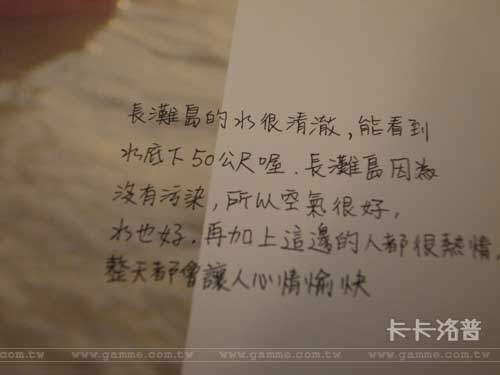 長灘島的水很清澈,能看到
水底下50公尺喔.長灘島因為
沒有污染,所以空氣很好,
水也好.再加上這邊的人都很熱情,
整天都會讓人心情愉快
卡卡洛普
www.gamme.com.tw www.gamme.com.tw www.gamme.com.tw